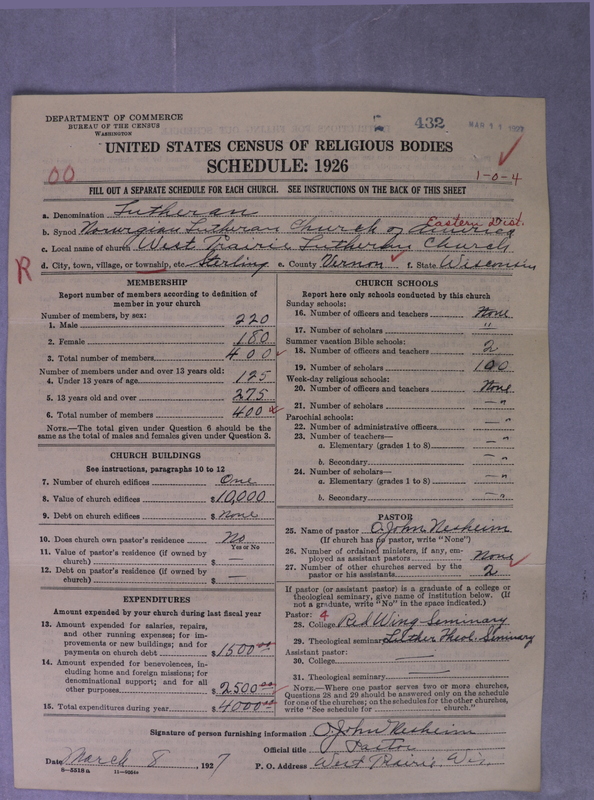 DEPARTMENT OF COMMERCE
BUREAU OF THE CENSUS
WASHINGTON
432
MAR 11 1927
UNITED STATES CENSUS OF RELIGIOUS BODIES
SCHEDULE: 1926
00
1-0-4
FILL OUT A SEPARATE SCHEDULE FOR EACH CHURCH. SEE INSTRUCTIONS ON THE BACK OF THIS SHEET
a. Denomination Lutheran
Eastern Dist.
b. Synod Norwegian Lutheran Church of America
c. Local name of church West Prairie Lutheran Church
R
d. City, town, village, or township, etc Sterling e. County Vernon f. State Wisconsin
MEMBERSHIP
Report number of members according to definition of
member in your church
Number of members, by sex:
1. Male 220
2. Female 180
3. Total number of members 400
Number of members under and over 13 years old:
4. Under 13 years of age 125
5. 13 years old and over 275
6. Total number of members 400
NOTE.—The total given under Question 6 should be the
same as the total of males and females given under Question 3.
CHURCH BUILDINGS
See instructions, paragraphs 10 to 12
7. Number of church edifices One
8. Value of church edifices $10,000
9. Debt on church edifices $ None
10. Does church own pastor's residence No
Yes or No
11. Value of pastor's residence (if owned by
church) $ —
12. Debt on pastor's residence (if owned by
church) $ —
EXPENDITURES
Amount expended by your church during last fiscal year
13. Amount expended for salaries, repairs,
and other running expenses; for im-
provements or new buildings; and for
payments on church debt $1500 00
14. Amount expended for benevolences, in-
cluding home and foreign missions; for
denominational support; and for all
other purposes $2500 00
15. Total expenditures during year $4000 00
CHURCH SCHOOLS
Report here only schools conducted by this church
Sunday schools:
16. Number of officers and teachers None
17. Number of scholars "
Summer vacation Bible schools:
18. Number of officers and teachers 2
19. Number of scholars 100
Week-day religious schools:
20. Number of officers and teachers None
21. Number of scholars — "
Parochial schools:
22. Number of administrative officers — "
23. Number of teachers—
a. Elementary (grades 1 to 8) — "
b. Secondary — "
24. Number of scholars—
a. Elementary (grades 1 to 8) — "
b. Secondary — "
PASTOR
25. Name of pastor O. John Nesheim
(If church has no pastor, write "None")
26. Number of ordained ministers, if any, em-
ployed as assistant pastors None
27. Number of other churches served by the
pastor or his assistants 2
If pastor (or assistant pastor) is a graduate of a college or
theological seminary, give name of institution below. (If
not a graduate, write "No" in the space indicated.)
Pastor: 4
28. College Red Wing Seminary
29. Theological seminary Luther Theol. Seminary
Assistant pastor:
30. College —
31. Theological seminary —
NOTE.—Where one pastor serves two or more churches,
Questions 28 and 29 should be answered only on the schedule
for one of the churches; on the schedules for the other churches,
write "See schedule for church."
Signature of person furnishing information O. John Nesheim
Official title Pastor
Date March 8, 1927 P. O. Address West Prairie, Wis
8—5518a